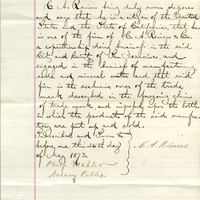 C. A. Reiners being duly sworn deposes
and says that he is a citizen of the United
States and the State of California, that he
is one of the firm of C. A. Reiners & Co.
a copartnership doing business in the said
City and County of San Francisco and
engaged in the business of manufacturing
soda and mineral water and that said
firm is the exclusive owner of the trade
mark described in the foregoing claim
of trade mark, and engraved upon the bottles
in which the products of the said manufac-
tory are put up and sold.
Subscribed and Sworn to
before me this 16th day
of May 1873.
C. A. Reiners
Notary Public